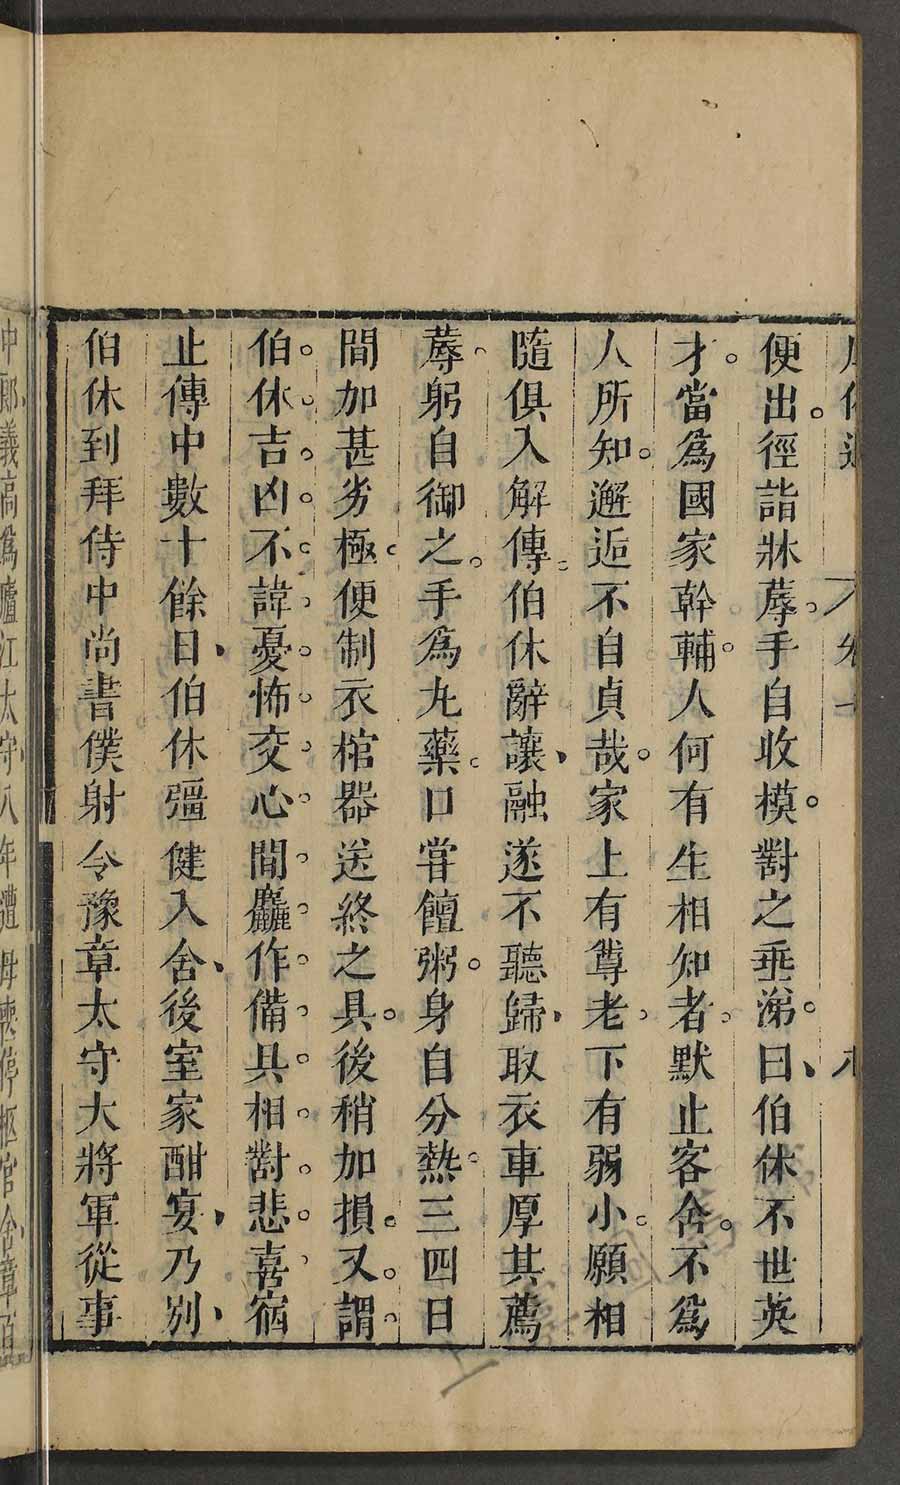 便出。徑詣牀蓐。手自收模。對之垂涕。曰、伯休不世英
才。當爲國家幹輔。人何有生相知者。默止客舍。不爲
人所知。邂逅不自貞哉。家上有尊老。下有弱小。願相
隨俱入解傳。伯休辭讓、融遂不聽歸、取衣車厚其薦
蓐。躬自御之。手爲丸藥。口甞饘粥。身自分熱。三四日
間加甚劣極。便制衣棺器送終之具。後稍加損。又。謂。
伯。休。吉。凶。不。諱。憂。怖。交。心。間。麤。作。備。具。相。對。悲。喜。宿
止傳中數十餘日、伯休彊健入舍、後室家酣宴、乃別、
伯休到拜侍中尚書僕射令豫章太守大將軍從事
中郎義高爲廬江太守八年遭母喪停柩官舍章百